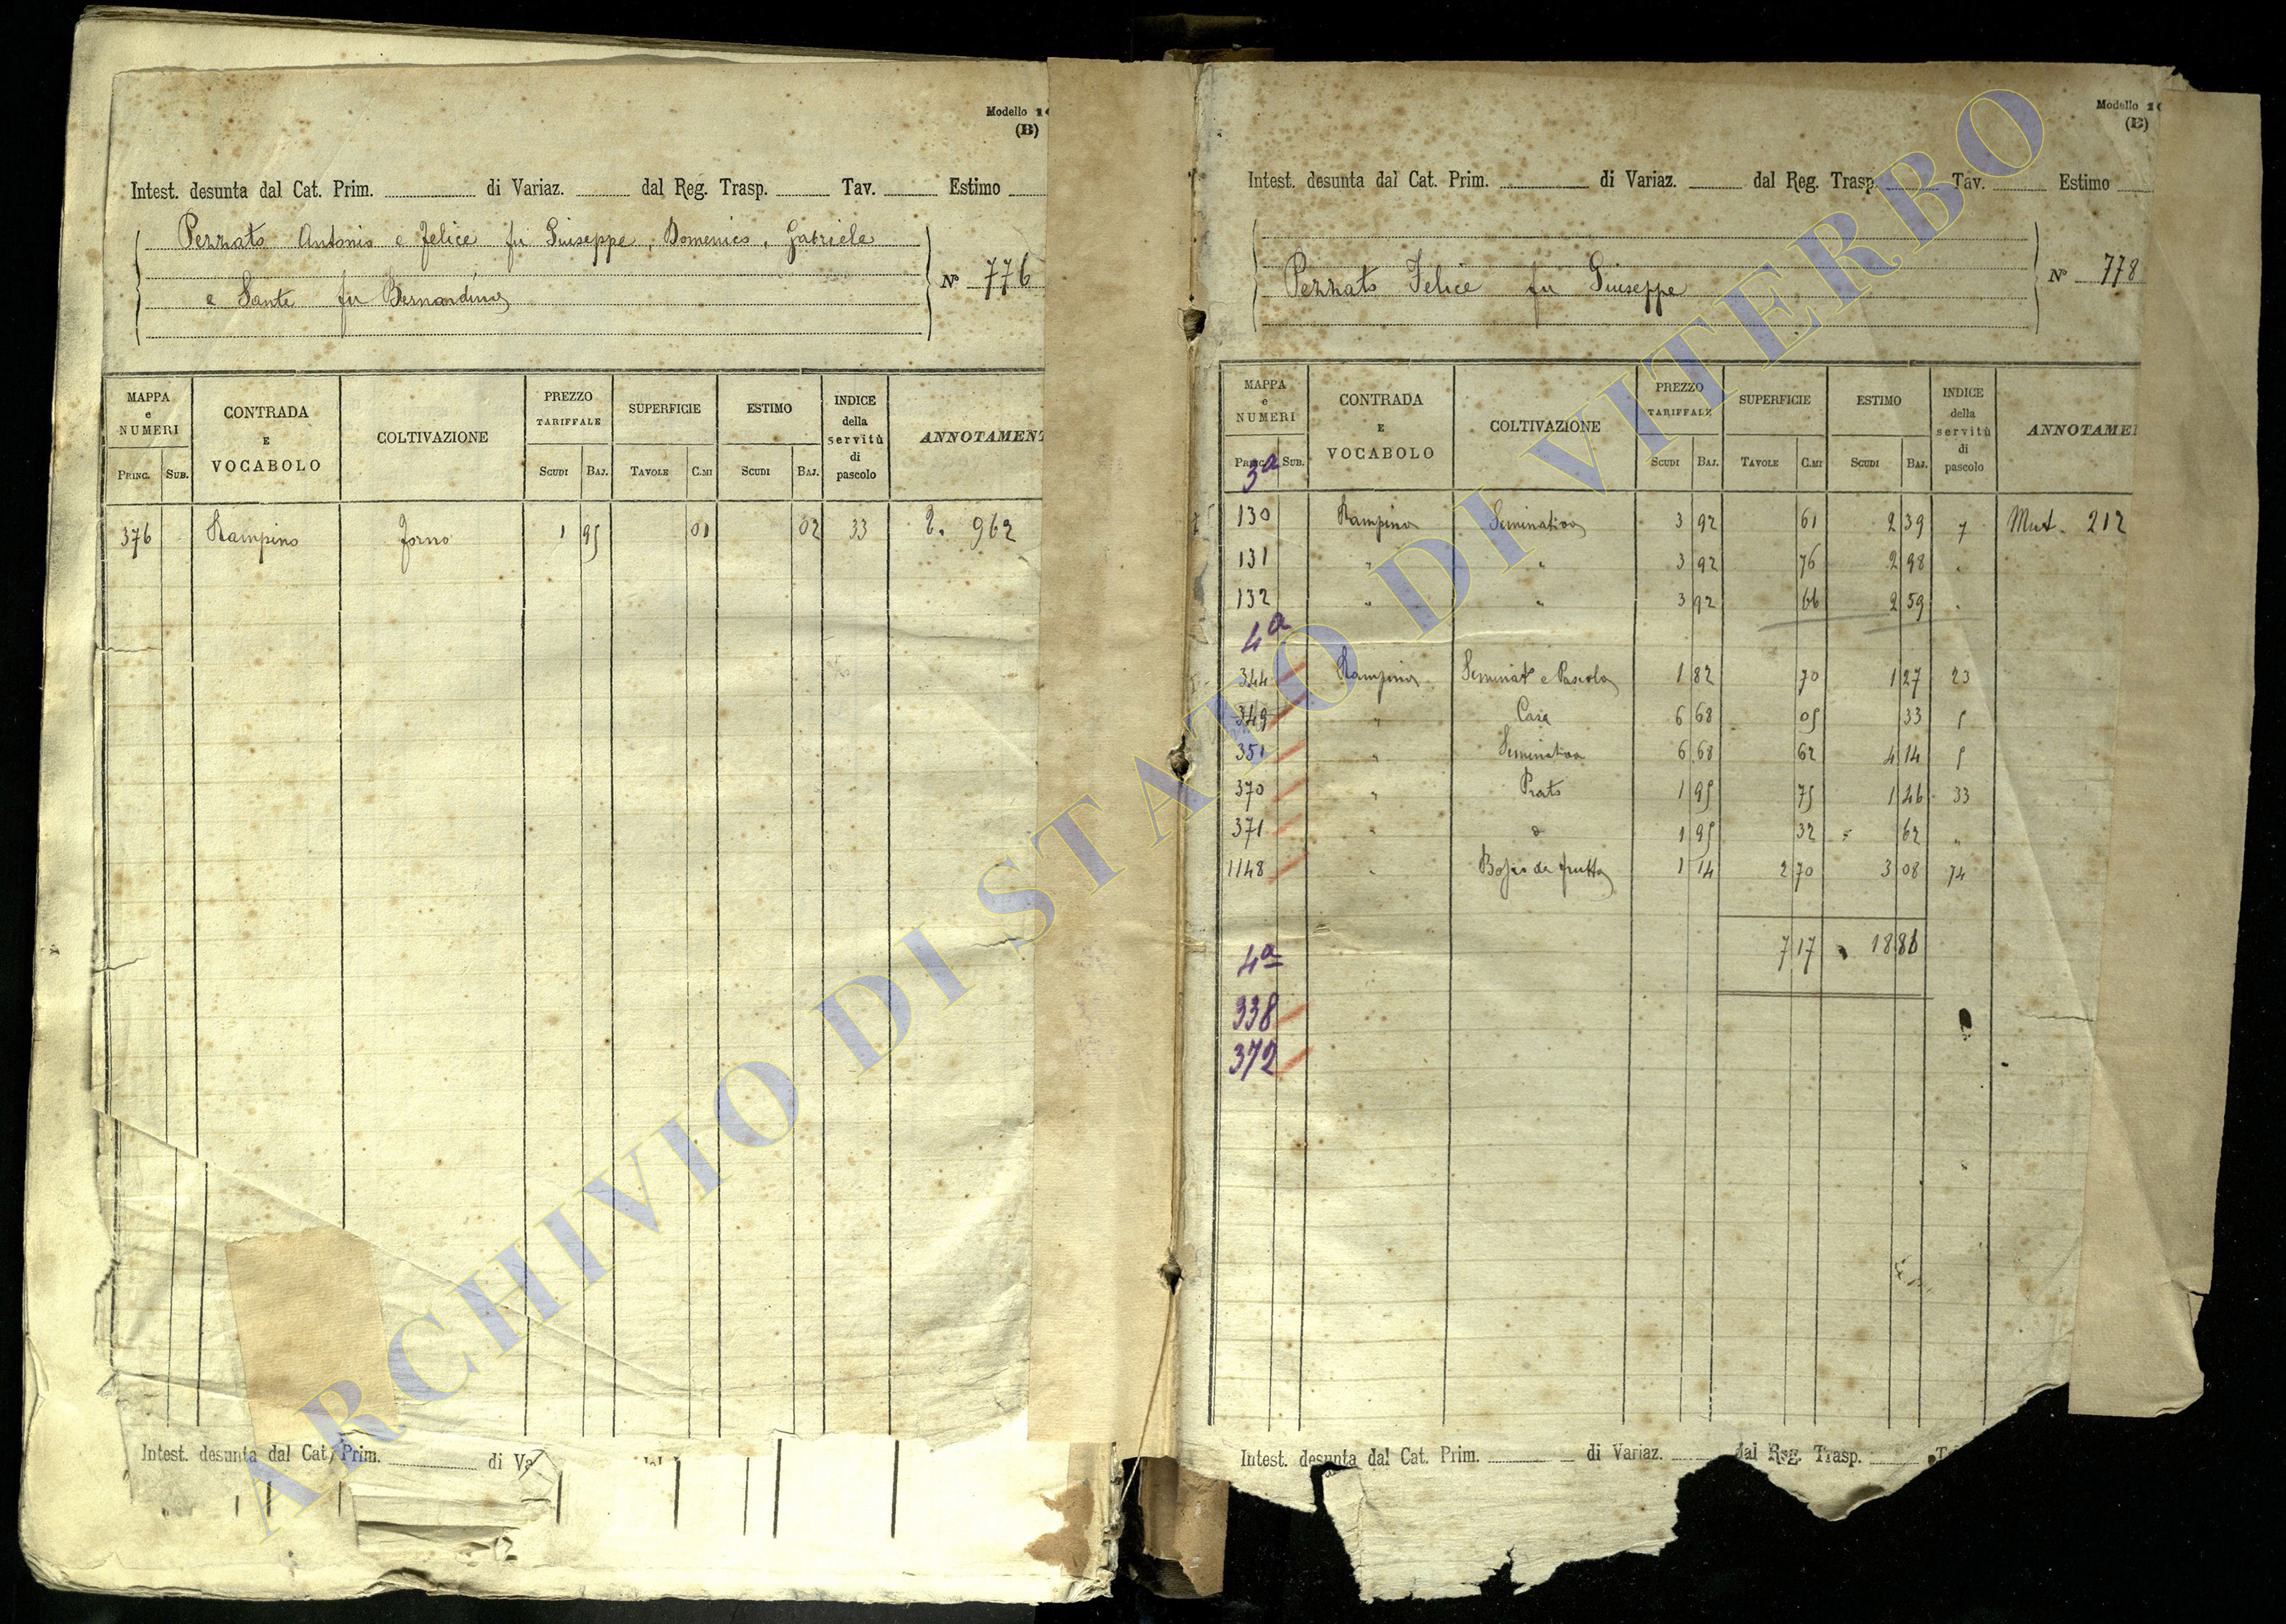 Modello 1
(B)
Intest. desunta dal Cat. Prim. di Variaz. dal Reg. Trasp. Tav. Estimo
Pezzato Antonio e Felice fu Giuseppe, Domenico, Gabriele
e Sante fu Bernardino
N° 776
MAPPA e NUMERI CONTRADA E VOCABOLO COLTIVAZIONE PREZZO TARIFFALE SUPERFICIE ESTIMO INDICE della servitù di pascolo ANNOTAMENT
PRINC. SUB. SCUDI BAJ. TAVOLE C.MI SCUDI BAJ.
376 Rampino Forno 1 95 01 02 33 962
Intest. desunta dal Cat. Prim. di Va
Modello 1
(B)
Intest. desunta dal Cat. Prim. di Variaz. dal Reg. Trasp. Tav. Estimo
Pezzato Felice fu Giuseppe
N° 778
MAPPA e NUMERI CONTRADA E VOCABOLO COLTIVAZIONE PREZZO TARIFFALE SUPERFICIE ESTIMO INDICE della servitù di pascolo ANNOTAME
PRINC. SUB. SCUDI BAJ. TAVOLE C.MI SCUDI BAJ.
3a
130 Rampino Seminativo 3 92 61 2 39 7 Mut. 212
131 " " 3 92 76 2 98 "
132 " " 3 92 66 2 59 "
4a
344 Rampino Seminat e Pascolo 1 82 70 1 27 23
349 " Casa 6 68 05 33 5
351 " Seminativo 6 68 62 4 14 5
370 " Prato 1 95 75 1 46 33
371 " d 1 95 32 62 "
1148 " Bosco da frutto 1 14 2 70 3 08 74
7 17 18 86
4a
338
372
Intest. desunta dal Cat. Prim. di Variaz. dal Reg. Trasp. T
ARCHIVIO DI STATO DI VITERBO